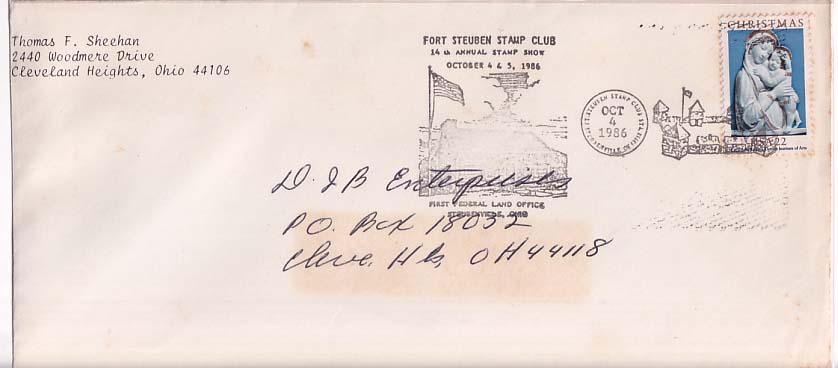 Thomas F. Sheehan
2440 Woodmere Drive
Cleveland Heights, Ohio 44106
FORT STEUBEN STAMP CLUB
14th ANNUAL STAMP SHOW
OCTOBER 4 & 5, 1986
FIRST FEDERAL LAND OFFICE
STEUBENVILLE, OHIO
FT. STEUBEN STAMP CLUB STA.
OCT
4
1986
STEUBENVILLE, OH
CHRISTMAS
22
Institute of Arts
D J B Enterprises
P.O. Box 18032
Cleve. Hts. OH 44118